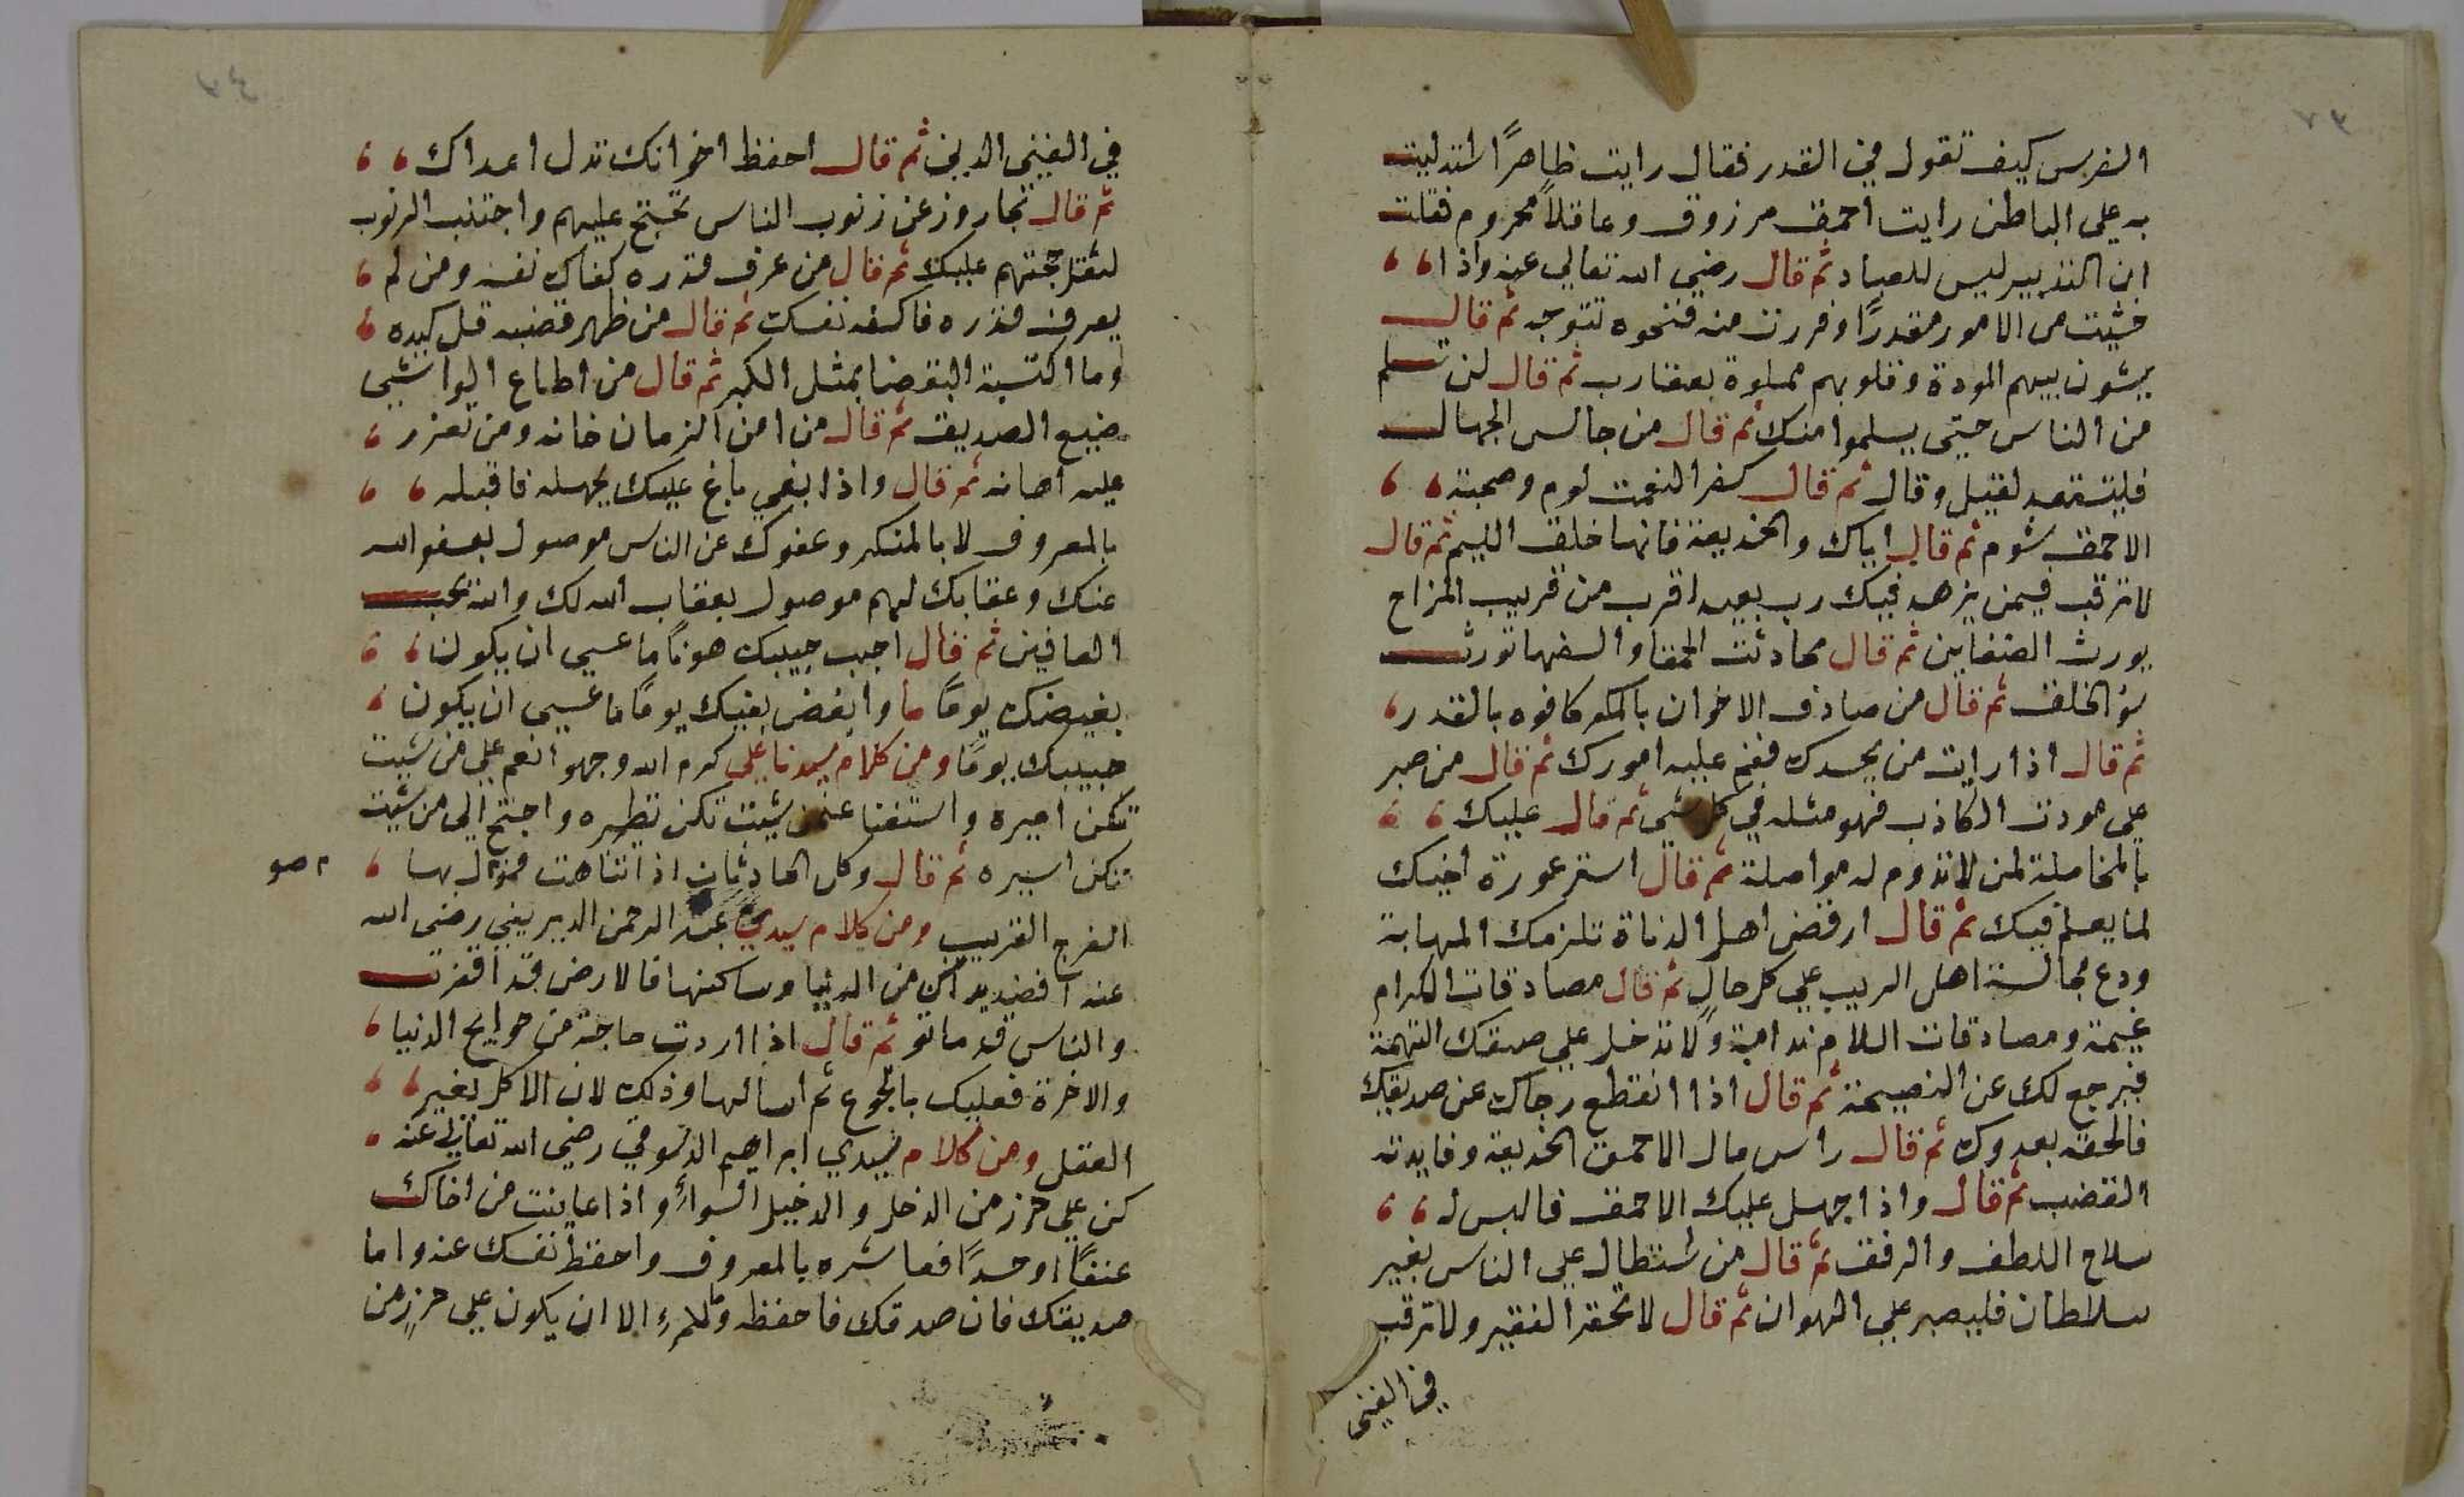 الفرس كيف تقول في القدر فقال رايت ظاهرًا استدليت
به علي الباطن رايت احمق مرزوق وعاقلاً محروم فقلت
ان التدبير ليس للعباد ثم قال رضي الله تعالي عنه واذا
خشيت من الامور مقدرًا وفررت منه فنحوه تتوجه ثم قال
يبشون بينهم المودة وقلوبهم مملوة بعقارب ثم قال لن تسلم
من الناس حتى يسلموا منك ثم قال من جالس الجهال
فليستعد لقيل وقال ثم قال كفر النعمت لوم وصحبة
الاحمق شوم ثم قال اياك والخديعة فانها خلق الليم ثم قال
لا ترقب فيمن يزهد فيك رب بعيد اقرب من قريب المزاح
يورث الضغاين ثم قال محادثت الحمقا والسفها تورث
سؤ الخلق ثم قال من صادف الاخوان بالمكر كافوه بالغدر
ثم قال اذا رايت من يحسدك فغم عليه امورك ثم قال من صبر
علي مودت الكاذب فهو مثله في كل شي ثم قال عليك
بالمخاصلة لمن لا تدوم له مواصلة ثم قال استر عورة اخيك
لما يعلم فيك ثم قال ارفض اهل الدناة تلزمك المهابة
ودع مجالسة اهل الريب علي كل حال ثم قال مصادقات الكرام
غيمة ومصادقات اللام ندامة ولا تدخل علي صدقك التهمة
فيرجع لك عن النصيحة ثم قال اذا انقطع رجاك عن صديقك
فالحقه بعدوك ثم قال راس مال الاحمق الخديعة وفايدته
الغضب ثم قال واذا جهل عليك الاحمق فالبس له
سلاح اللطف والرفق ثم قال من استطال علي الناس بغير
سلطان فليصبر علي الهوان ثم قال لا تحقر الفقير ولا ترقب
في الغنى
في الغنى الدين ثم قال احفظ اخوانك تدل اعداك
ثم قال تجاروز عن زنوب الناس تحتج عليهم واجتنب الزنوب
لتقل حجتهم عليك ثم قال من عرف قدره كفاك نفسه ومن لم
يعرف قدره فاكفه نفسك ثم قال من ظهر غضبه قل كيده
وما اكتسبة البغضا بمثل الكبر ثم قال من اطاع الواشي
ضيع الصديق ثم قال من امن الزمان خانه ومن تعزر
عليه اهانه ثم قال واذا بغي باغ عليك بجهله فاقبله
بالمعروف لا بالمنكر وعفوك عن الناس موصول بعفو الله
عنك وعقابك لهم موصول بعقاب الله لك والله يحب
العافين ثم قال احبب حبيبك هونًا ما عسي ان يكون
بغيضك يومًا ما وابغض بغيك يومًا ما عسي ان يكون
حبيبك يومًا ومن كلام سيدنا علي كرم الله وجهه انعم علي من شيت
تكن اميره واستغنا عن من شيت تكن نظيره واحتج الي من شيت
تكن اسيره ثم قال وكل الحادثات اذا تناهت فموال بها
صو
الفرج القريب ومن كلام سيدي عبد الرحمن الديريني رضي الله
عنه انفض يداك من الدنيا وساكنها فالارض قد اقفرت
والناس قد ماتو ثم قال اذا اردت حاجة من حوايج الدنيا
والاخرة فعليك بالجوع ثم اسالها وذلك لان الاكل يغير
العقل ومن كلام سيدي ابراهيم الدسوقي رضي الله تعالي عنه
كن علي حرز من الدخل والدخيل السواء واذا عاينت من اخاك
عنقًا او حسدًا فعاشره بالمعروف واحفظ نفسك عنه واما
صديقك فان صدقك فاحفظه وللمرء الا ان يكون علي حرزٍ من